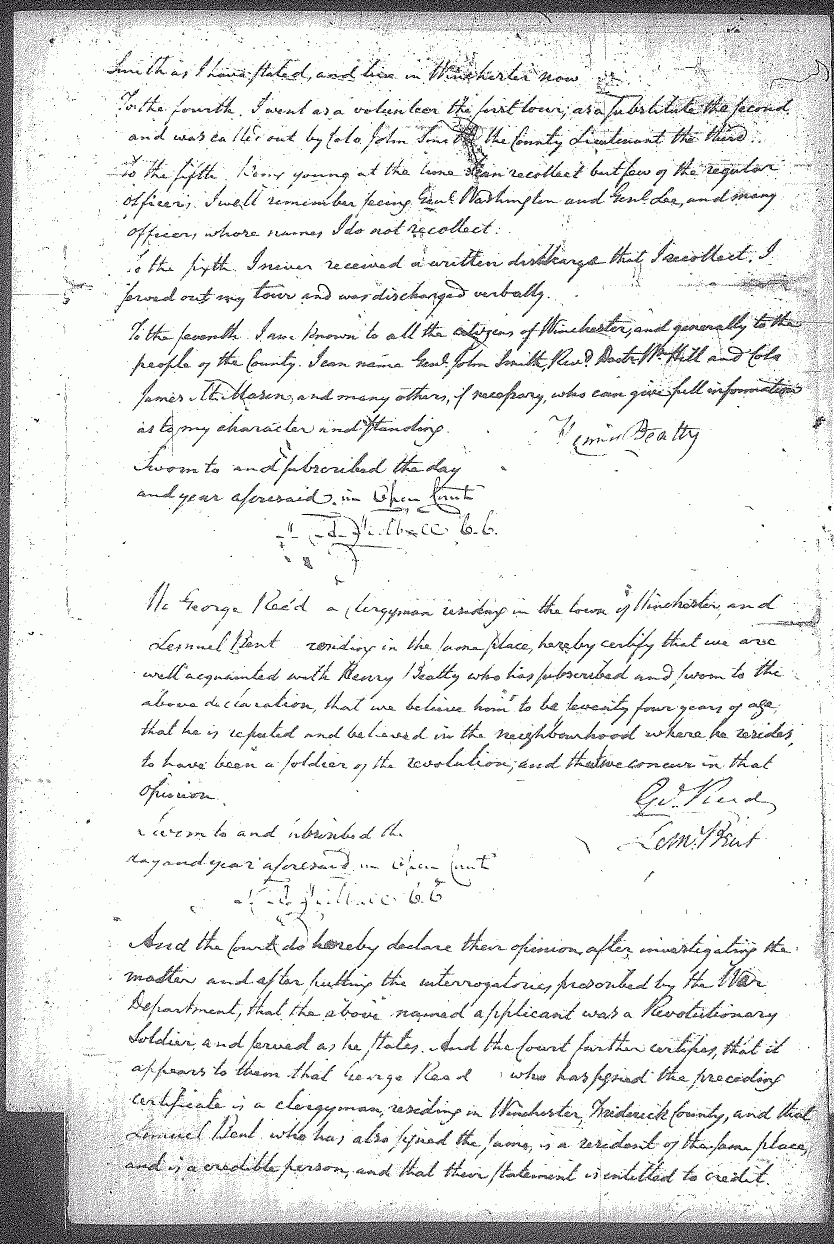 Smith as I have stated, and live in Winchester now
To the fourth. I went as a volunteer the first tour, as a substitute the second,
and was called out by Colo. John Smith the County Lieutenant the third.
To the fifth. Being young at the time I can recollect but few of the regular
officers. I well remember seeing Genl. Washington and Genl. Lee, and many
officers, whose names I do not recollect.
To the sixth. I never received a written discharge that I recollect. I
served out my tour and was discharged verbally.
To the seventh. I am known to all the citizens of Winchester, and generally to the
people of the County. I can name Genl. John Smith, Revd. Doctr. Wm. Hill and Colo
James M. Mason, and many others, if necessary, who can give full information
as to my character and standing.
Henry Beatty
Sworn to and subscribed the day
and year aforesaid. in Open Court
C.C.
We George Reed a clergyman residing in the town of Winchester, and
Lemuel Bent residing in the same place, hereby certify that we are
well acquainted with Henry Beatty who has subscribed and sworn to the
above declaration, that we believe him to be seventy four years of age,
that he is reputed and believed in the neighbourhood where he resides,
to have been a soldier of the revolution, and that we concur in that
opinion.
Geo. Reed
Leml. Bent
Sworn to and subscribed the
day and year aforesaid in Open Court
C.C.
And the Court do hereby declare their opinion, after investigating the
matter and after putting the interrogatories prescribed by the War
Department, that the above named applicant was a Revolutionary
Soldier, and served as he states. And the Court further certifies, that it
appears to them that George Reed who has signed the preceding
certificate is a clergyman, residing in Winchester, Frederick County, and that
Lemuel Bent who has also signed the same, is a resident of the same place,
and is a credible person, and that their statement is entitled to credit.